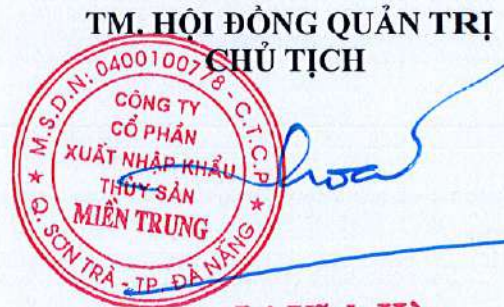 TM. HỘI ĐỒNG QUẢN TRỊ
CHỦ TỊCH
M.S.D.N: 0400100778 - C.T.C.P
CÔNG TY
CỔ PHẦN
XUẤT NHẬP KHẨU
THỦY SẢN
MIỀN TRUNG
Q. SƠN TRÀ - TP. ĐÀ NẴNG